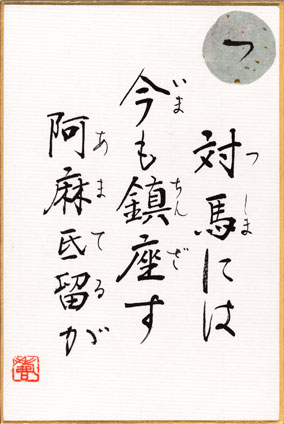 つ
対馬には
つしま
今も鎮座す
いま ちんざ
阿麻氐留が
あまてる